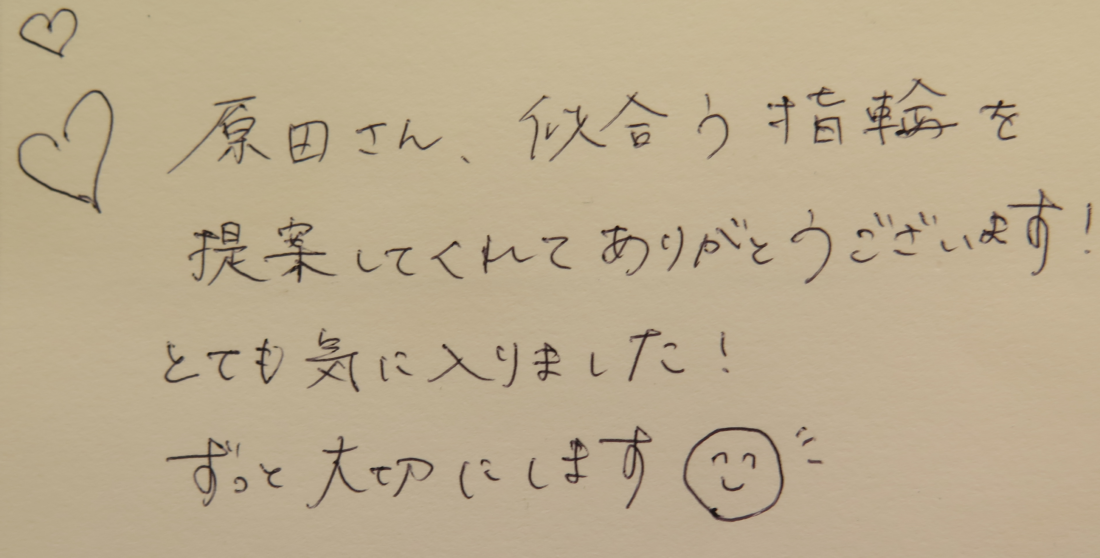 原田さん、似合う指輪を
提案してくれてありがとうございます!
とても気に入りました!
ずっと大切にします